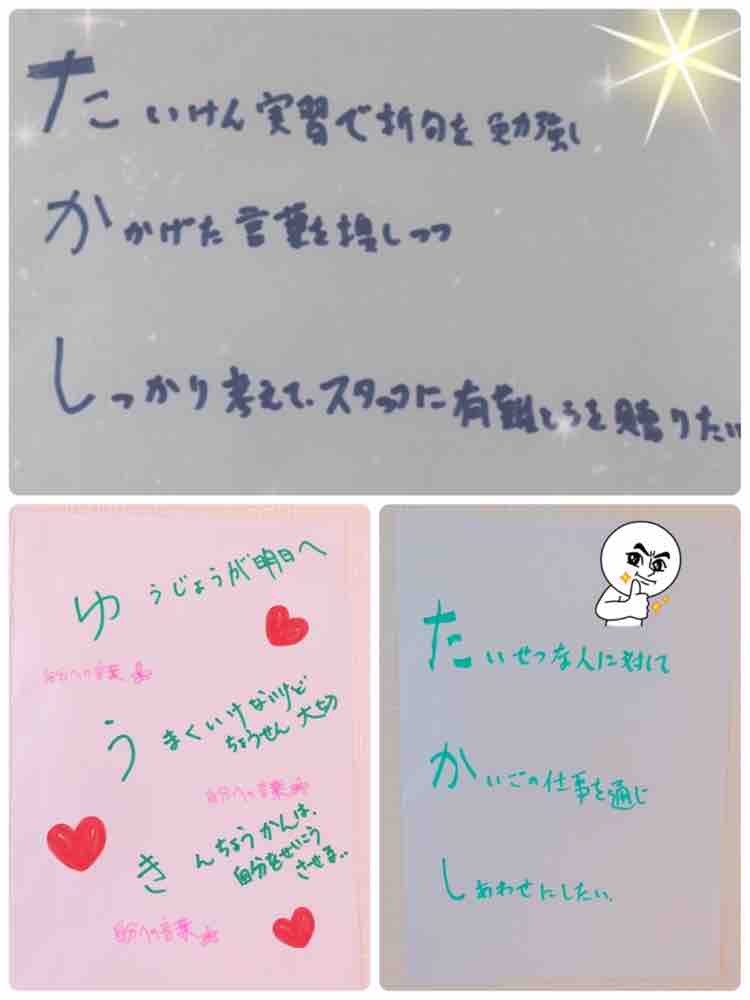 たいけん実習で折句を勉強し
かかげた言葉を探しつつ
しっかり考えて、スタッフに有難とうを贈りたい
ゆうじょうが明日へ
自分への言葉
うまくいけないけど
ちょうせん大切
自分への言葉
きんちょうかんは、
自分をせいこう
させる..
自分への言葉
たいせつな人に対して
かいごの仕事を通じ
しあわせにしたい。